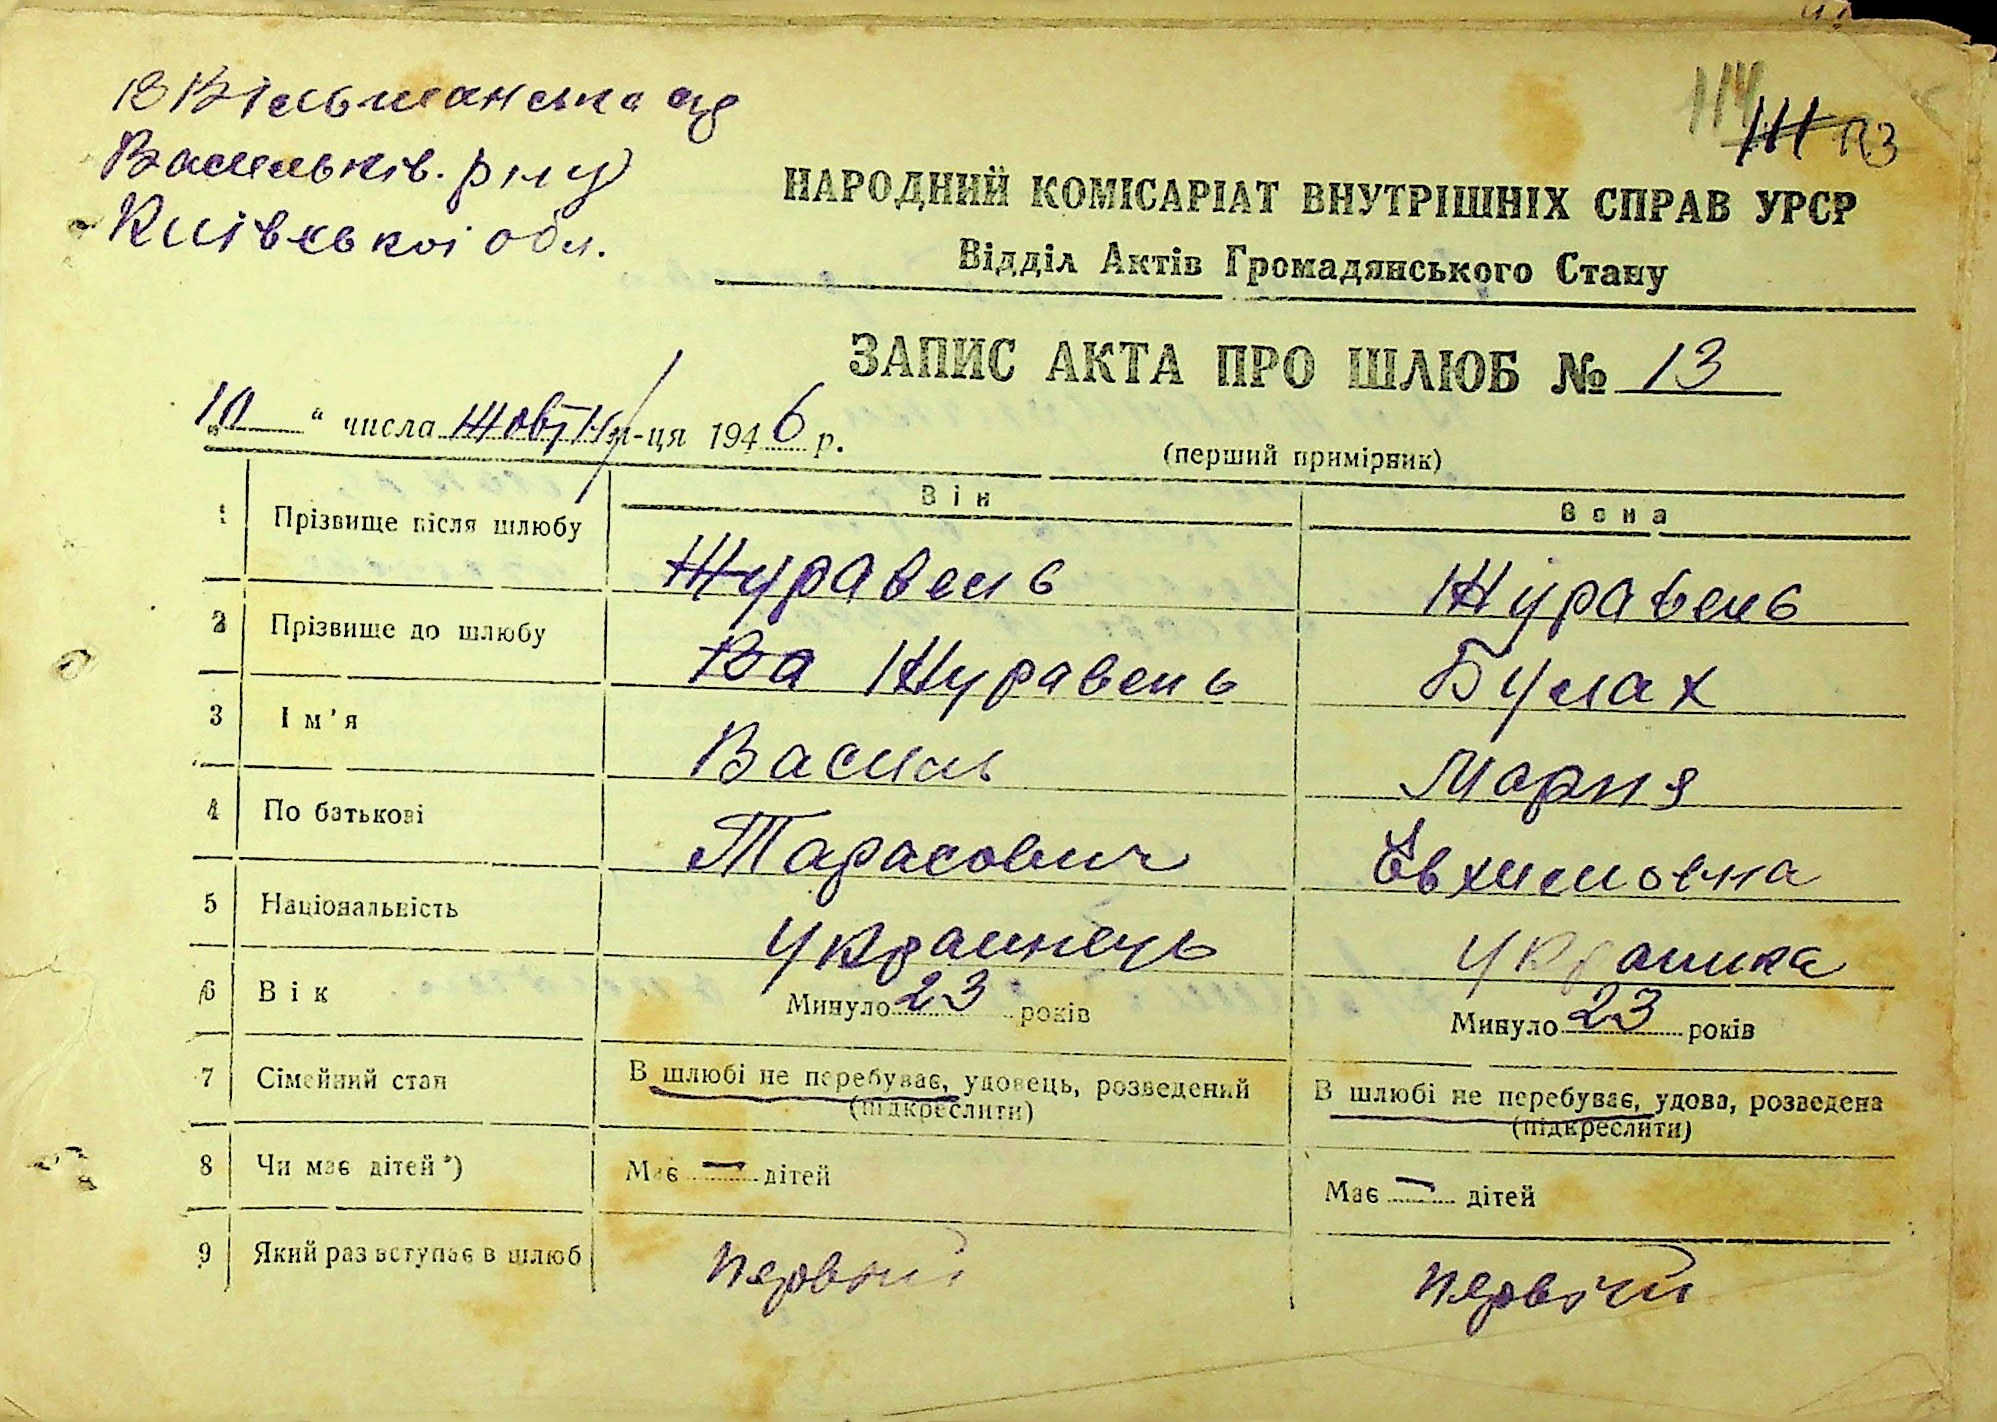 Васильків. р-ну
Київської обл.
114
111 113
НАРОДНИЙ КОМІСАРІАТ ВНУТРІШНІХ СПРАВ УРСР
Відділ Актів Громадянського Стану
ЗАПИС АКТА ПРО ШЛЮБ № 13
„10 “ числа Жовтн м-ця 1946 р.
(перший примірник)
Він Вона
1 Прізвище після шлюбу Журавель Журавель
2 Прізвище до шлюбу Ва Журавель Булах
3 Ім'я Василь Мария
4 По батькові Тарасович Євхимовна
5 Національність Украинець Украинка
6 Вік Минуло 23 років Минуло 23 років
7 Сімейний стан В шлюбі не перебуває, удовець, розведений В шлюбі не перебуває, удова, розведена
(підкреслити) (підкреслити)
8 Чи має дітей*) Має — дітей Має — дітей
9 Який раз вступає в шлюб первий первий